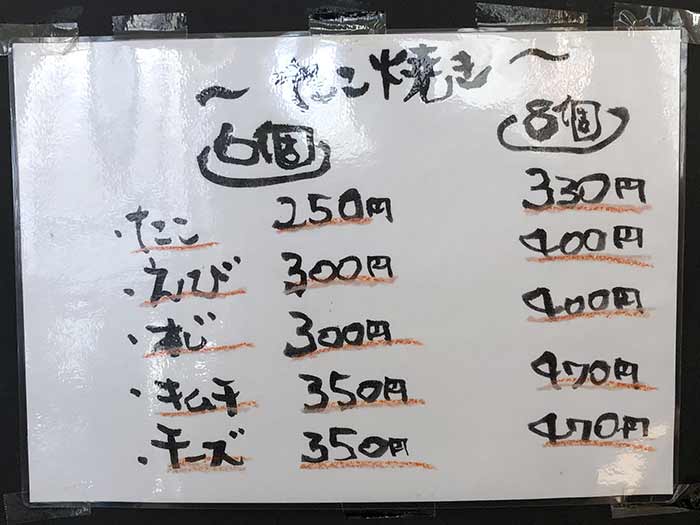 ～たこ焼き～
6個 8個
・たこ 250円 330円
・えび 300円 400円
・ねじ 300円 400円
・キムチ 350円 470円
・チーズ 350円 470円